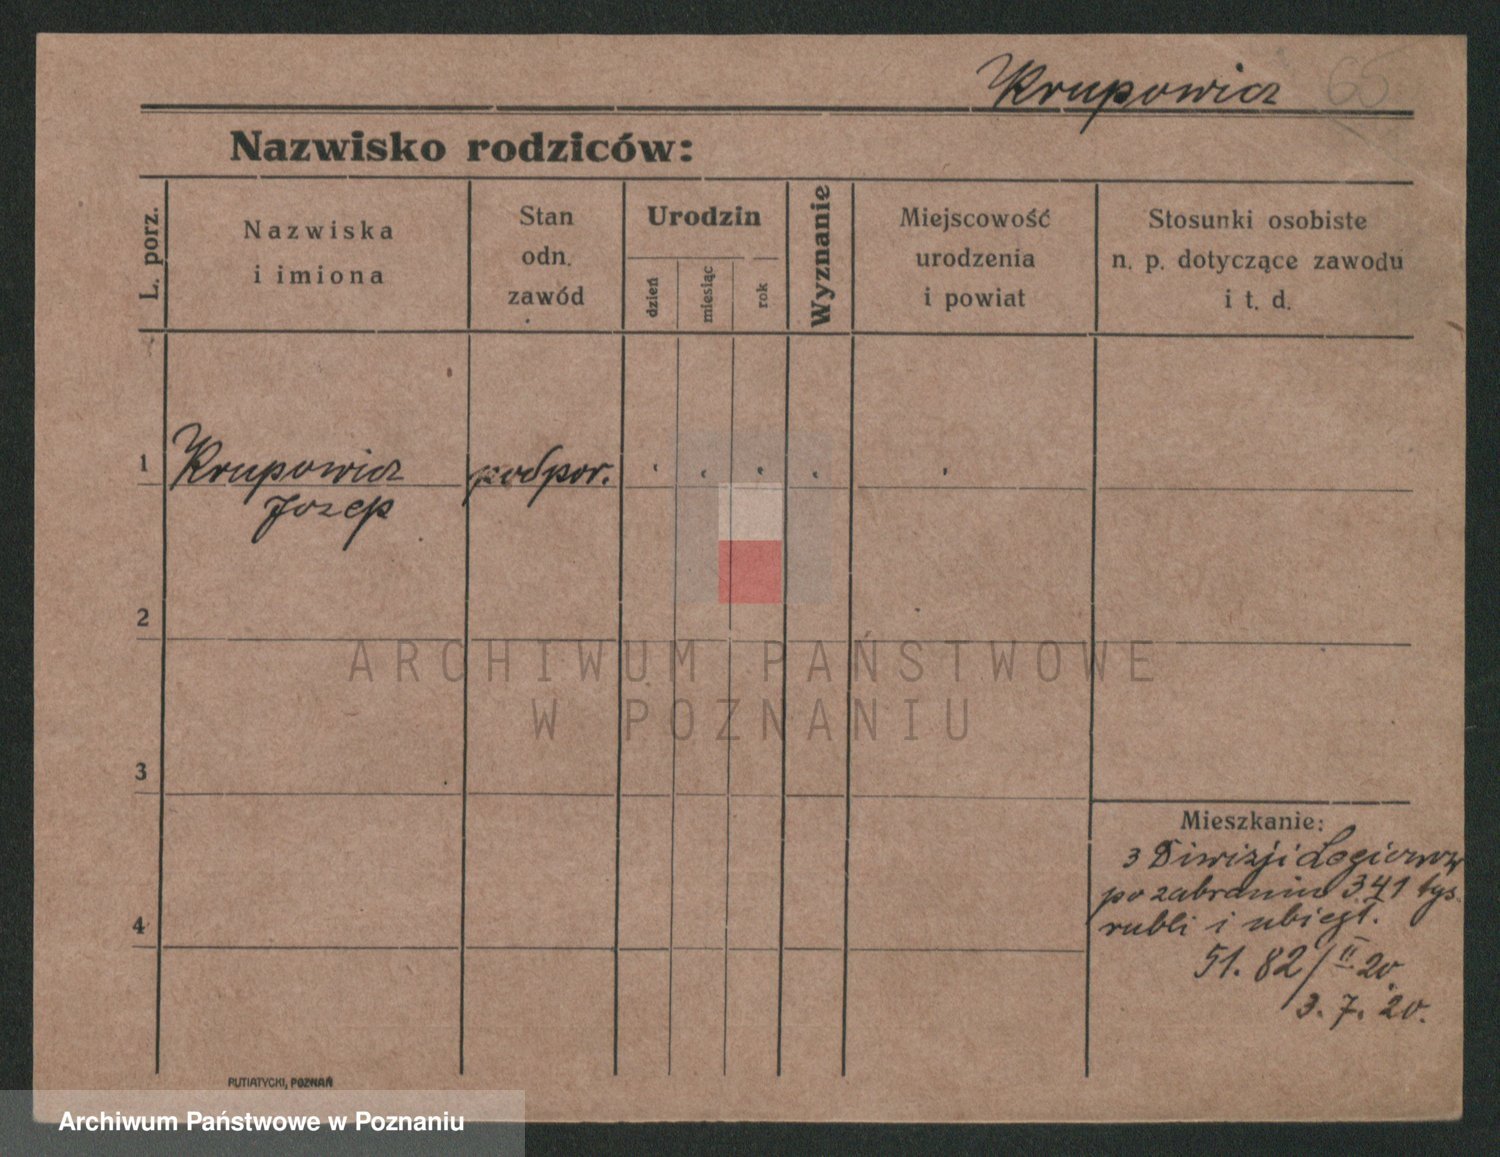 Krupowicz 65
Nazwisko rodziców:
L. porz.
Nazwiska
i imiona
Stan
odn.
zawód
Urodzin
dzień
miesiąc
rok
Wyznanie
Miejscowość
urodzenia
i powiat
Stosunki osobiste
n. p. dotyczące zawodu
i t. d.
1 Krupowicz podpor.
Jozep
2
ARCHIWUM PAŃSTWOWE
W POZNANIU
3
Mieszkanie:
3 Diwizji
po zabraniu 341 tys.
rubli i ubiegł.
4
51. 82/II 20.
3. 7. 20.
RUTIATYCKI, POZNAŃ
Archiwum Państwowe w Poznaniu